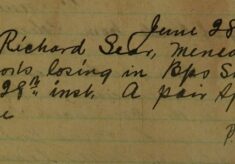 June 28
Richard Sear, Menea
osts losing in Bps S
28th inst. A pair Sp
e